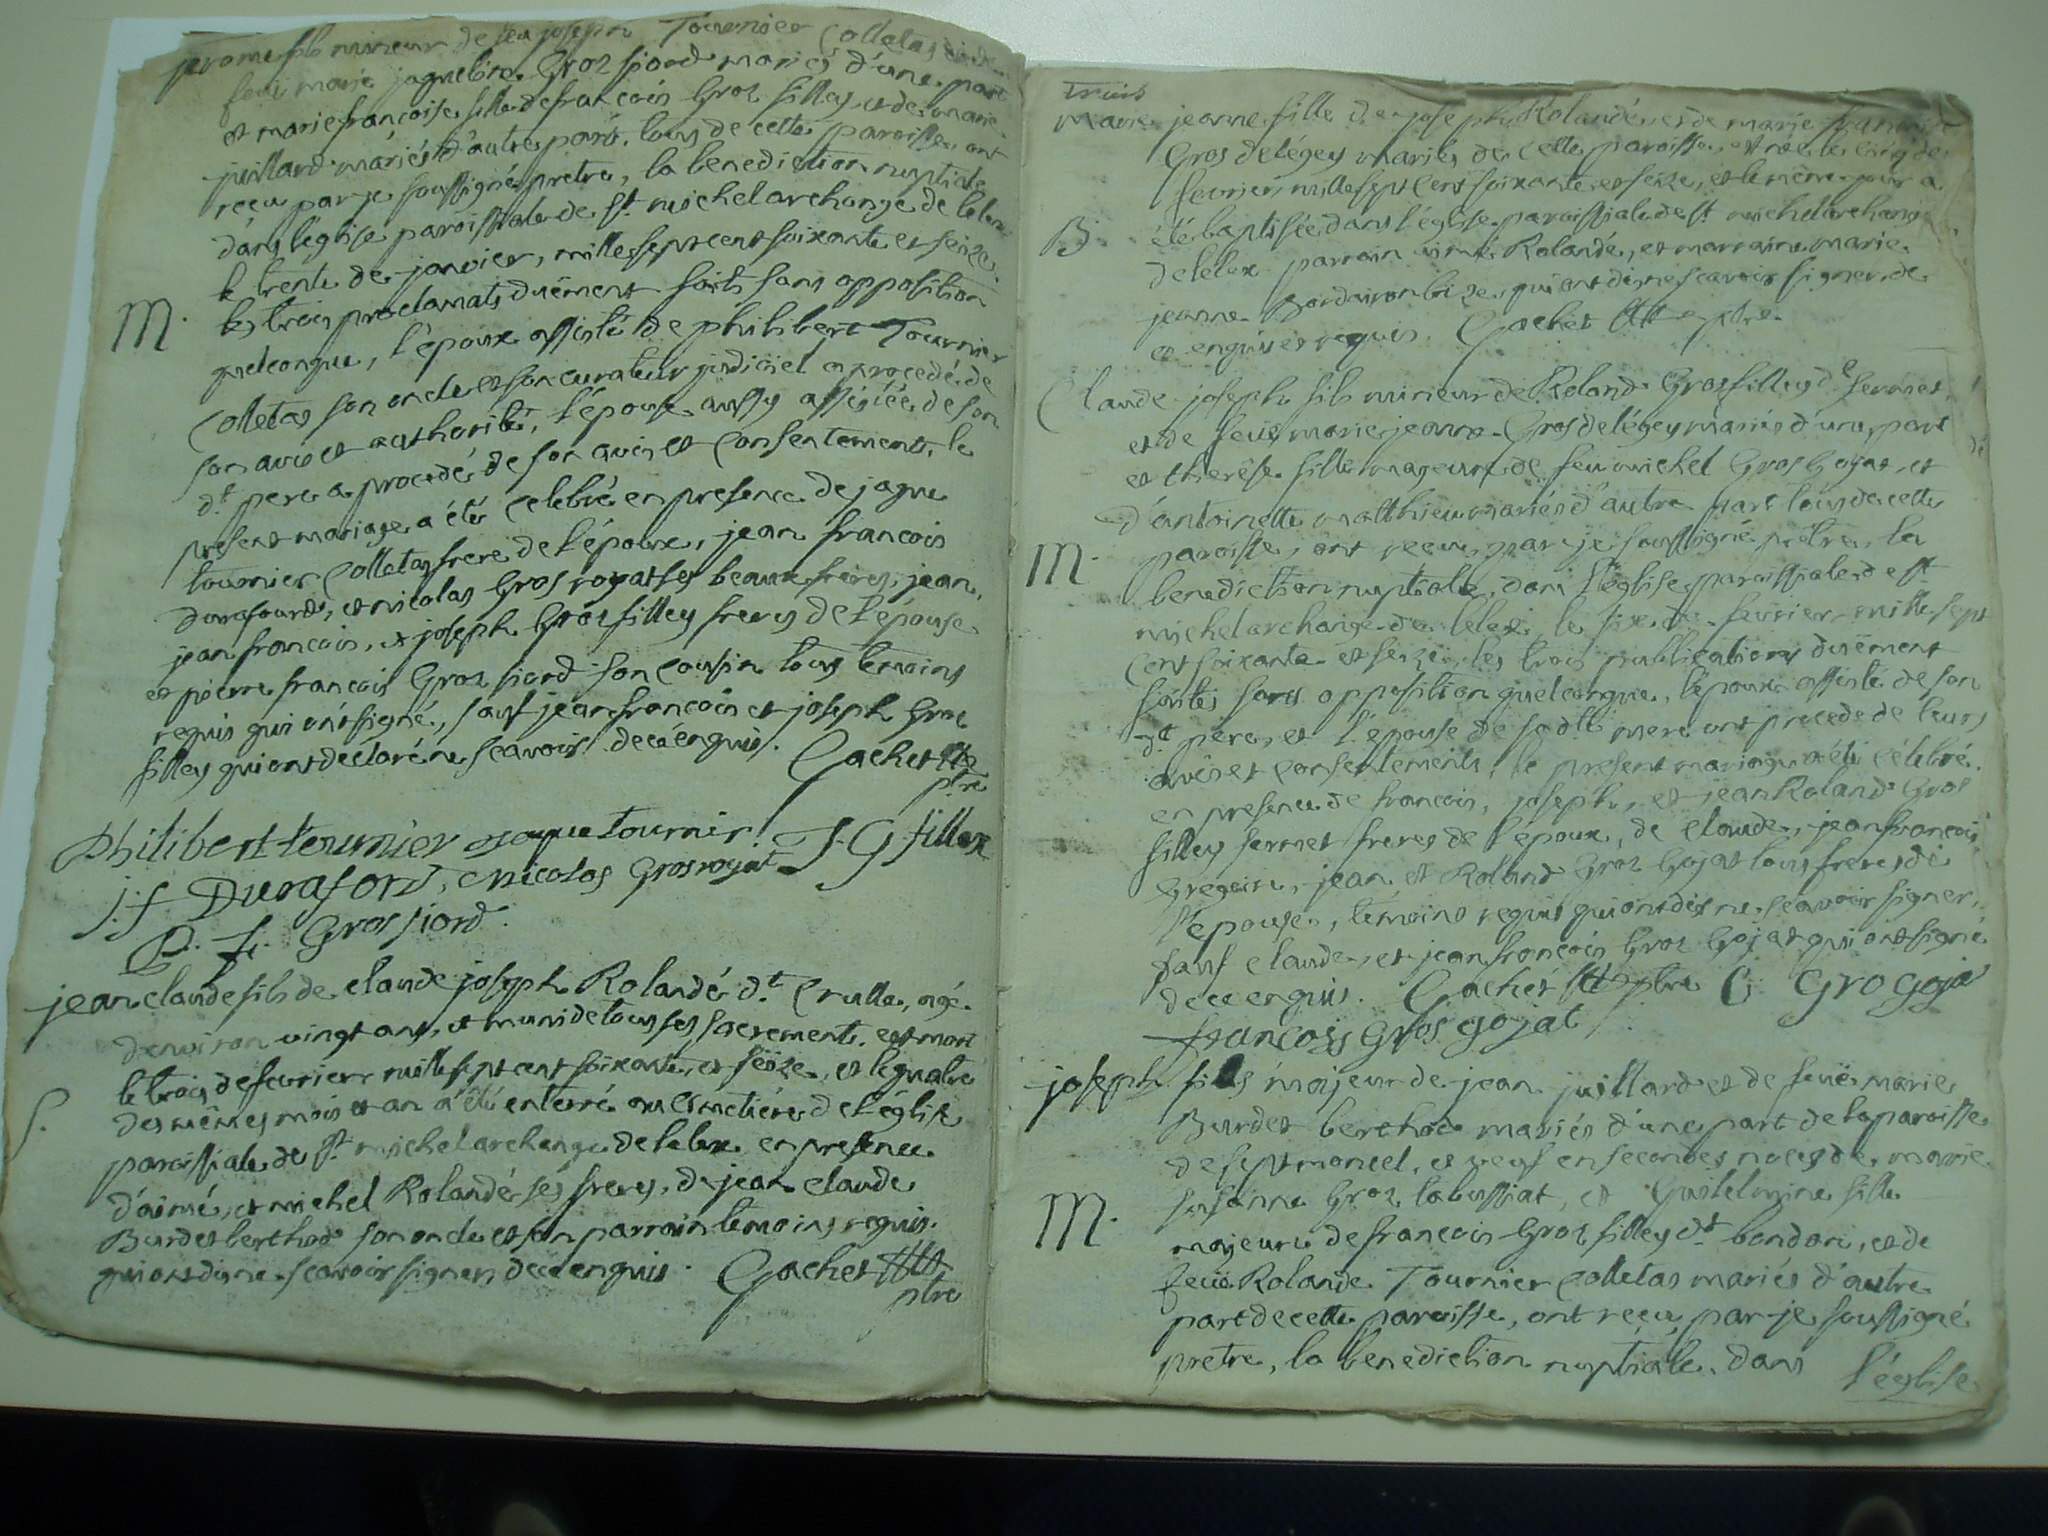 jerome fils mineur de feu joseph Tournier Colletas et de
feue marie jaqueline Gros jiord mariés d'une part
et marie francoise fille de francois Gros filley et de marie
juillard mariés d'autre part. tous de cette paroisse, ont
reçu par je soussigné prêtre, la benediction nuptiale
dans l'eglise paroissiale de st michel archange de lelex
le trente de janvier, mille sept cent soixante et seize.
M.
les trois proclamats düement faits sans opposition
quelconque, l'époux assisté de philibert Tournier
Colletas son oncle et son curateur judiciel a procedé de
son avis et authorité, l'épouse aussy assistée de son
dt pere a procedé de son avis et consentement, le
present mariage a été celebré en presence de jaque
tournier Colletas frere de l'époux, jean francois
durafourd, et nicolas Gros royat ses beaux freres, jean,
jean francois, et joseph Gros filley freres de l'épouse
et pierre francois Gros jiord son cousin tous temoins
requis qui ont signé, sauf jean francois et joseph Gros
filley qui ont déclaré ne scavoir de ce enquis. Gachet
ptre
Philibert tournier jaque tournir J. G fillex
j. f Durafort, nicolas Grosroyat
P. f. Gros jiord.
jean claude fils de claude joseph Rolandé dt Crulla, agé
d'environ vingt ans, et muni de tous ses sacrements, est mort
le trois de fevrier mille sept cent soixante et seize, et le quatre
des mêmes mois et an a été enterré au cimetiére de l'église
S.
paroissiale de st michel archange de lelex en presence
d'aimé, et michel Rolandé ses freres, de jean claude
Burdet berthod son oncle et son parrain temoins requis.
qui ont dit ne scavoir signer de ce enquis. Gachet
ptre
trois
Marie jeanne fille de joseph Rolandé et de marie francoise
Gros delégey mariés de cette paroisse, est née le cinq de
fevrier mille sept cent soixante et seize, et le même jour a
B.
été baptisée dans l'église paroissiale de st michel archange
de lelex parrain aimé Rolandé, et marraine marie
jeanne qui ont dit ne scavoir signer de
ce enquis et requis. Gachet ptre
Claude joseph fils mineur de Roland Gros filley dt fermet,
et de feüe marie jeanne Gros delégey mariés d'une part
et therése fille majeure de feu michel Gros Gojat, et
d'antoinette matthieu mariés d'autre part tous de cette
M.
paroisse, ont reçu par je soussigné prêtre, la
benediction nuptiale, dans l'église paroissiale de st
michel archange de lelex, le six de fevrier mille sept
cent soixante et seize, les trois publications düement
faites sans opposition quelconque, l'époux assisté de son
dt pere, et l'épouse de sa dte mere ont procedé de leurs
avis et consentements, le present mariage a été célébré
en presence de francois, joseph, et jean Roland Gros
filley fermet freres de l'époux, de claude, jean francois,
Gregoire, jean et Roland Gros Gojat tous freres de
l'épouse, témoins requis qui ont dit ne scavoir signer,
sauf claude, et jean francois Gros Gojat qui ont signé
de ce enquis. Gachet ptre C Gro goja
francois gros gojat
joseph fils majeur de jean juillard et de feüe marie
Burdet berthod mariés d'une part de la paroisse
de septmoncel, et veuf en secondes noces de marie
susanne Gros labussiat, et Guillelmine fille
M.
majeure de francois Gros filley dt bandori, et de
feüe Rolande Tournier Colletas mariés d'autre
part de cette paroisse, ont reçu par je soussigné
prêtre, la benediction nuptiale, dans
l'église